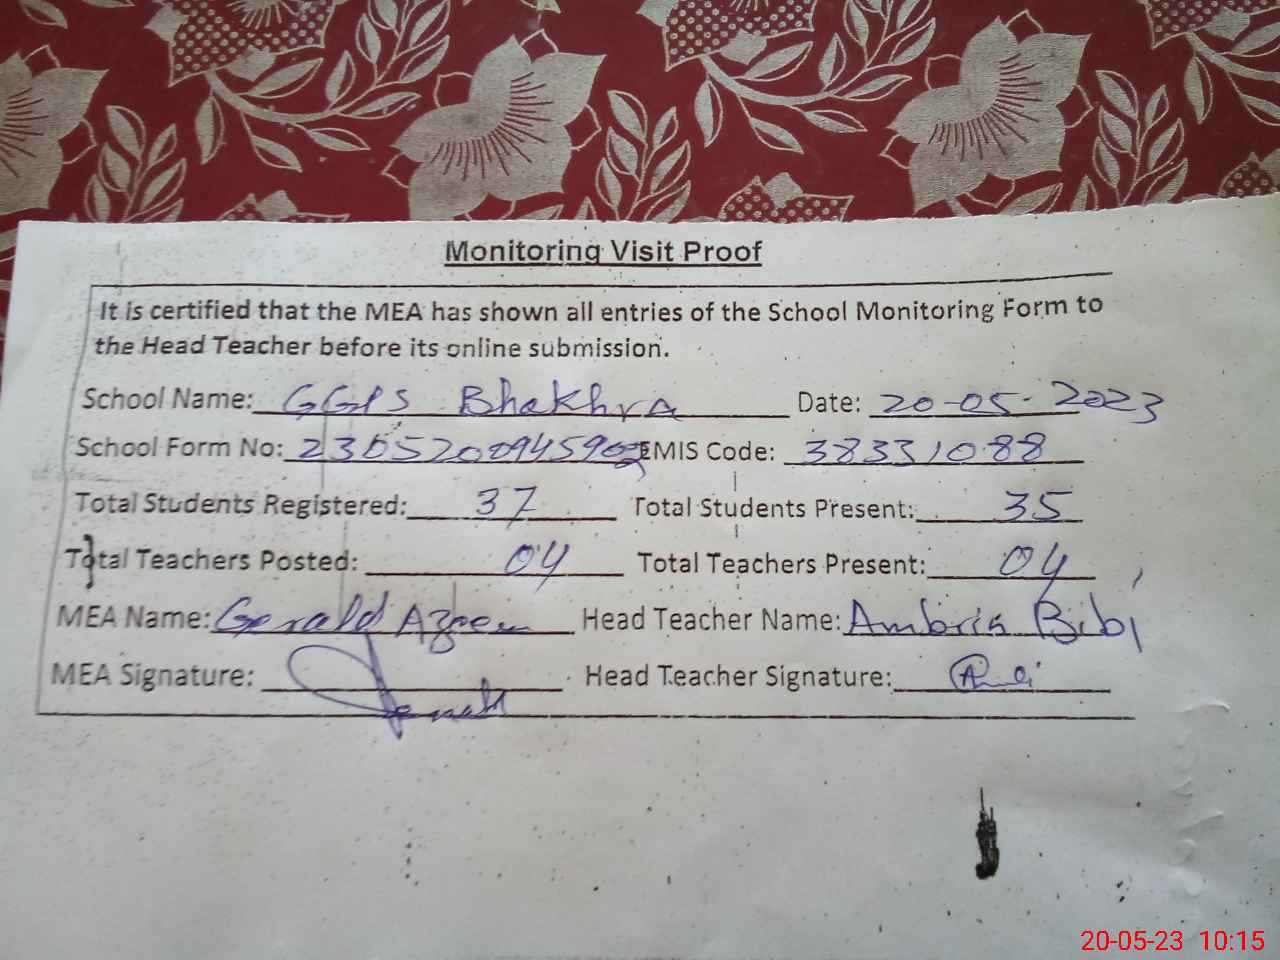 Monitoring Visit Proof
It is certified that the MEA has shown all entries of the School Monitoring Form to
the Head Teacher before its online submission.
School Name: GGPS Bhakhra Date: 20-05-2023
School Form No: EMIS Code: 38331088
Total Students Registered: 37 Total Students Present: 35
Total Teachers Posted: 04 Total Teachers Present: 04
MEA Name: Gerald Azeem Head Teacher Name: Ambrin Bibi
MEA Signature: Head Teacher Signature:
20-05-23 10:15